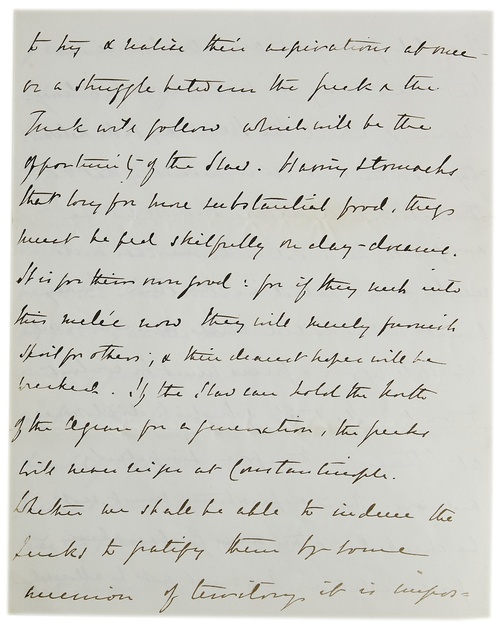 to try & realise their aspirations at once –
or a struggle between the Greek & the
Turk will follow which will be the
opportunity of the Slav. Having stomachs
that long for more substantial food, they
must be fed skilfully on day-dreams.
It is for their own good: for if they rush into
this melée now they will merely furnish
spoil for others; & their dearest hopes will be
wrecked. If the Slav can hold the North
of the Aegean for a generation, the Greeks
will never reign at Constantinople.
Whether we shall be able to induce the
Turks to gratify them by some
accession of territory, it is impos=